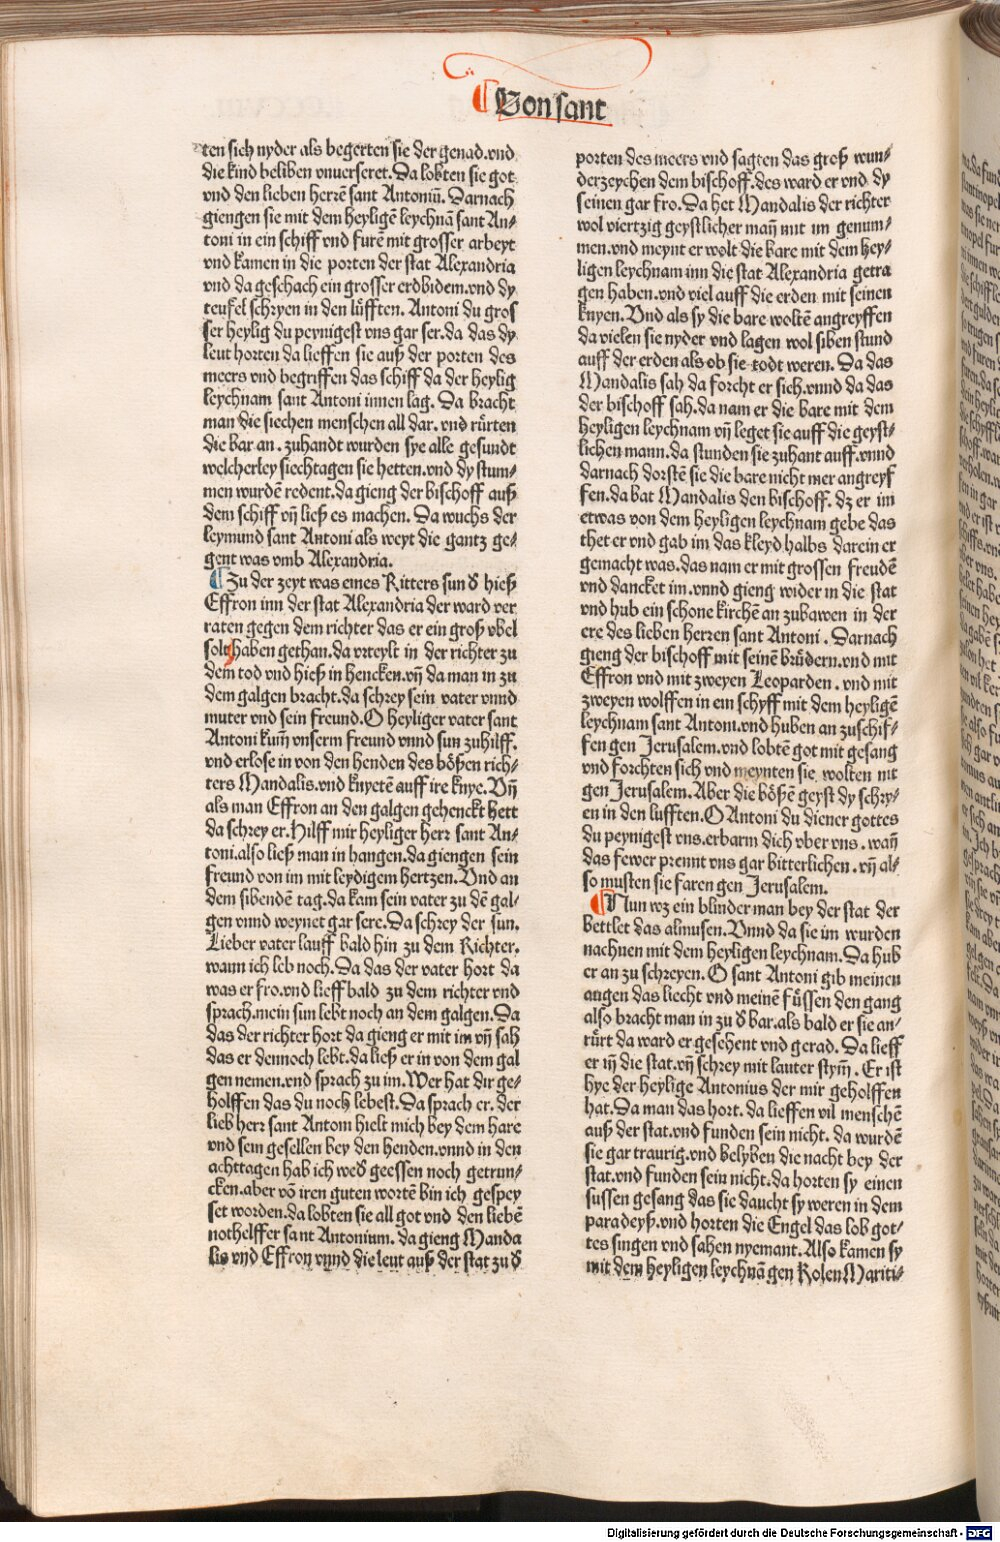 Von sant
ten sich nyder als begerten sie der genad.vnd
die kind beliben vnuerseret. Da lobten sie got
vnd den lieben herrē sant Antoniū. Darnach
giengen sie mit dem heyligē leychnā sant An-
toni in ein schiff vnd furē mit grosser arbeyt
vnd kamen in die porten der stat Alexandria
vnd da geschach ein grosser erdbidem.vnd dy
teufel schryen in den lüfften. Antoni du gros
ser heylig du peynigest vns gar ser.da das dy
leut horten da lieffen sie auß der porten des
meers vnd begriffen das schiff da der heylig
leychnam sant Antoni innen lag. Da bracht
man die siechen menschen all dar. vnd rürten
die bar an . zuhandt wurden sye alle gesundt
welcherley siechtagen sie hetten.vnd dy stum-
men wurdē redent.da gieng der bischoff auß
dem schiff vn̄ ließ es machen. Da wuchs der
leymund sant Antoni als weyt die gantz ge-
gent was vmb Alexandria.
Zu der zeyt was eines Ritters sun d hieß
Effron inn der stat Alexandria der ward ver
raten gegen dem richter das er ein groß vbel
solt haben gethan.da vrteylt in der richter zu
dem tod vnd hieß in hencken.vn̄ da man in zu
dem galgen bracht.da schrey sein vater vnnd
muter vnd sein freund. O heyliger vater sant
Antoni kum̄ vnserm freund vnnd sun zuhilff.
vnd erlose in von den henden des bößen rich-
ters Mandalis.vnd knyetē auff ire knye. Vn̄
als man Effron an den galgen gehenckt hett
da schrey er. Hilff mir heyliger herr sant An-
toni.also ließ man in hangen.da giengen sein
freund von im mit leydigem hertzen. Vnd an
dem sibendē tag.da kam sein vater zu dē gal-
gen vnnd weynet gar sere. Da schrey der sun.
Lieber vater lauff bald hin zu dem Richter.
wann ich leb noch. Da das der vater hort da
was er fro.vnd lieff bald zu dem richter vnd
sprach.mein sun lebt noch an dem galgen. Da
das der richter hort da gieng er mit im vn̄ sah
das er dennoch lebt.da ließ er in von dem gal
gen nemen.vnd sprach zu im. Wer hat dir ge-
holffen das du noch lebest. Da sprach er. der
lieb herr sant Antoni hielt mich bey dem hare
vnd sein gesellen bey den henden.vnnd in den
achttagen hab ich wed geessen noch getrun-
cken.aber vō iren guten wortē bin ich gespey
set worden.da lobten sie all got vnd den liebē
nothelffer sant Antonium. da gieng Manda
lis vnd Effron vnnd die leut auß der stat zu d
porten des meers vnd sagten das groß wun-
derzeychen dem bischoff.des ward er vnd dy
seinen gar fro. Da het Mandalis der richter
wol viertzig geystlicher man̄ mit im genum-
men.vnd meynt er wolt die bare mit dem hey-
ligen leychnam inn die stat Alexandria getra
gen haben.vnd viel auff die erden mit seinen
knyen. Vnd als sy die bare woltē angreyffen
da vielen sie nyder vnd lagen wol siben stund
auff der erden als ob sie todt weren. Da das
Mandalis sah da forcht er sich.vnnd da das
der bischoff sah.da nam er die bare mit dem
heyligen leychnam vn̄ leget sie auff die geyst-
lichen mann.da stunden sie zuhant auff.vnnd
darnach dorstē sie die bare nicht mer angreyf
fen.da bat Mandalis den bischoff. dz er im
etwas von dem heyligen leychnam gebe das
thet er vnd gab im das kleyd halbs darein er
gemacht was.das nam er mit grossen freudē
vnd dancket im.vnnd gieng wider in die stat
vnd hub ein schone kirchē an zubawen in der
ere des lieben herren sant Antoni . Darnach
gieng der bischoff mit seinē brüdern.vnd mit
Effron vnd mit zweyen Leoparden . vnd mit
zweyen wolffen in ein schyff mit dem heyligē
leychnam sant Antoni.vnd huben an zuschif-
fen gen Jerusalem.vnd lobtē got mit gesang
vnd forchten sich vnd meynten sie wolten nit
gen Jerusalem. Aber die bößē geyst dy schry-
en in den lufften. O Antoni du diener gottes
du peynigest vns.erbarm dich vber vns . wan̄
das fewer prennt vns gar bitterlichen . vn̄ al-
so musten sie faren gen Jerusalem.
Nun wz ein blinder man bey der stat der
bettlet das almusen. Vnnd da sie im wurden
nachnen mit dem heyligen leychnam. Da hub
er an zu schreyen. O sant Antoni gib meinen
augen das liecht vnd meinē füssen den gang
also bracht man in zu d bar.als bald er sie an-
rürt da ward er gesehent vnd gerad. Da lieff
er in̄ die stat.vn̄ schrey mit lauter stym̄ . Er ist
hye der heylige Antonius der mir geholffen
hat. Da man das hort. da lieffen vil menschē
auß der stat.vnd funden sein nicht. da wurdē
sie gar traurig.vnd belyben die nacht bey der
stat.vnd funden sein nicht.da horten sy einen
sussen gesang das sie daucht sy weren in dem
paradeyß.vnd horten die Engel das lob got-
tes singen vnd sahen nyemant. Also kamen sy
mit dem heyligen leychnā gen Rolen Mariti-
Digitalisierung gefördert durch die Deutsche Forschungsgemeinschaft - DFG